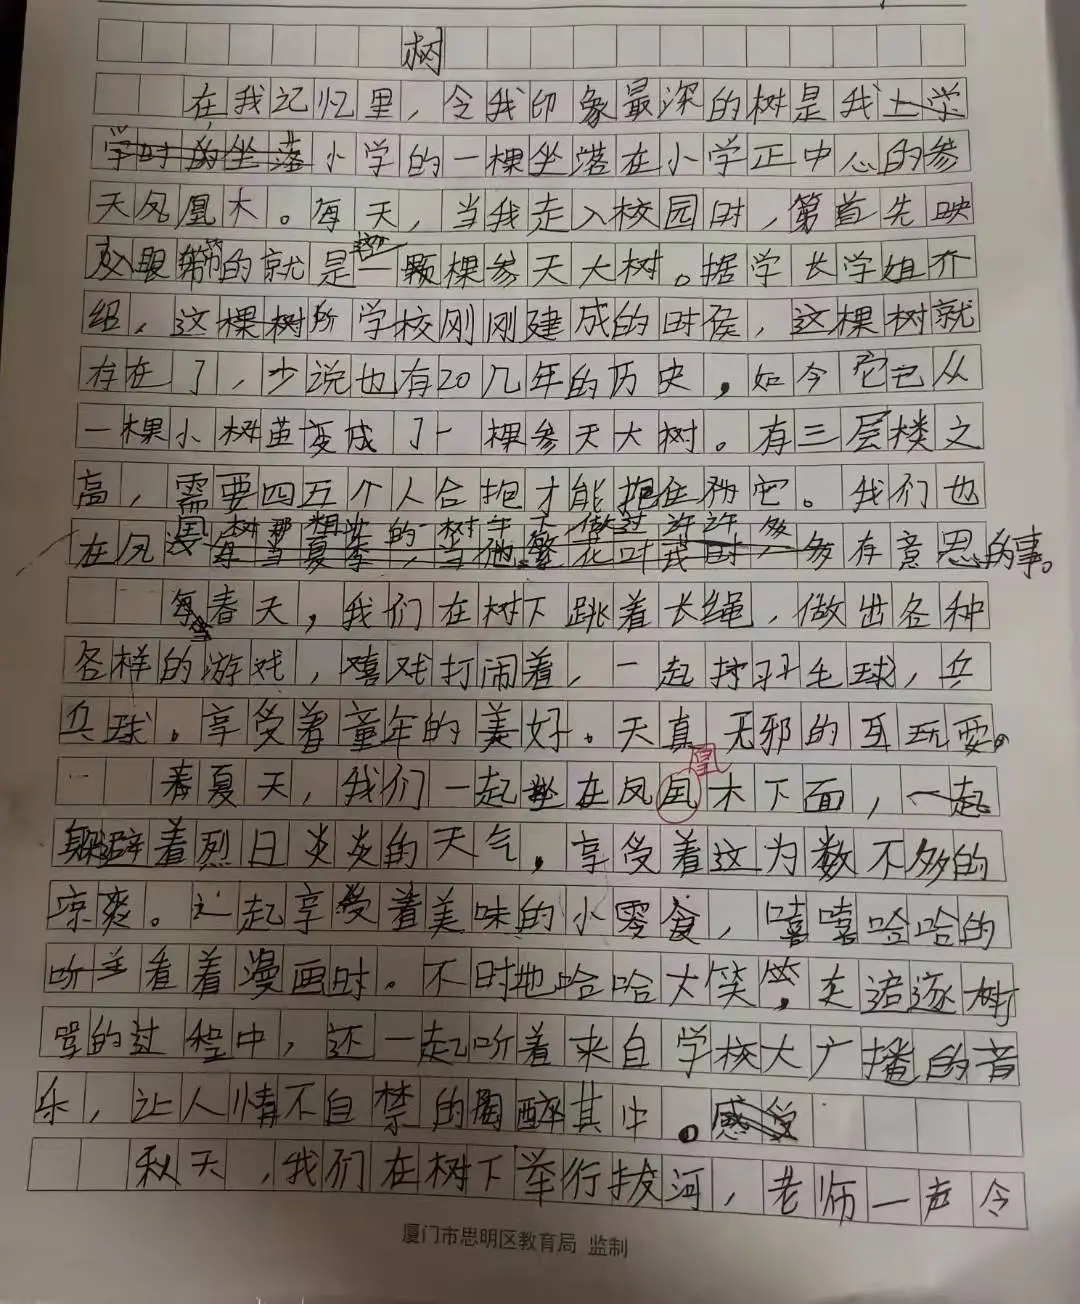 树
在我记忆里，令我印象最深的树是我上学
学时的坐落小学的一棵坐落在小学正中心的参
天凤凰木。每天，当我走入校园时，第首先映
入眼帘的就是一颗棵参天大树。据学长学姐介
绍，这棵树所学校刚刚建成的时侯，这棵树就
存在了，少说也有20几年的历史，如今它已从
一棵小树苗变成了一棵参天大树。有三层楼之
高，需要四五个人合抱才能抱住它。我们也
国树那粗壮的树干下做过许许多
在凤每当夏季，当他繁花时，多有意思的事。
每当春天，我们在树下跳着长绳，做出各种
各样的游戏，嘻戏打闹着，一起打羽毛球，乒
乓球。享受着童年的美好。天真无邪的互玩耍。
春夏天，我们一起坐在凤国木下面，一起
凰
躲避着烈日炎炎的天气，享受着这为数不多的
凉爽。一起享受着美味的小零食，嘻嘻哈哈的
听羊看着漫画时。不时地哈哈大笑，在追逐树
的过程中，还一起听着来自学校大广播的音
乐，让人情不自禁的陶醉其中。感受
秋天，我们在树下举行拔河，老师一声令
厦门市思明区教育局 监制